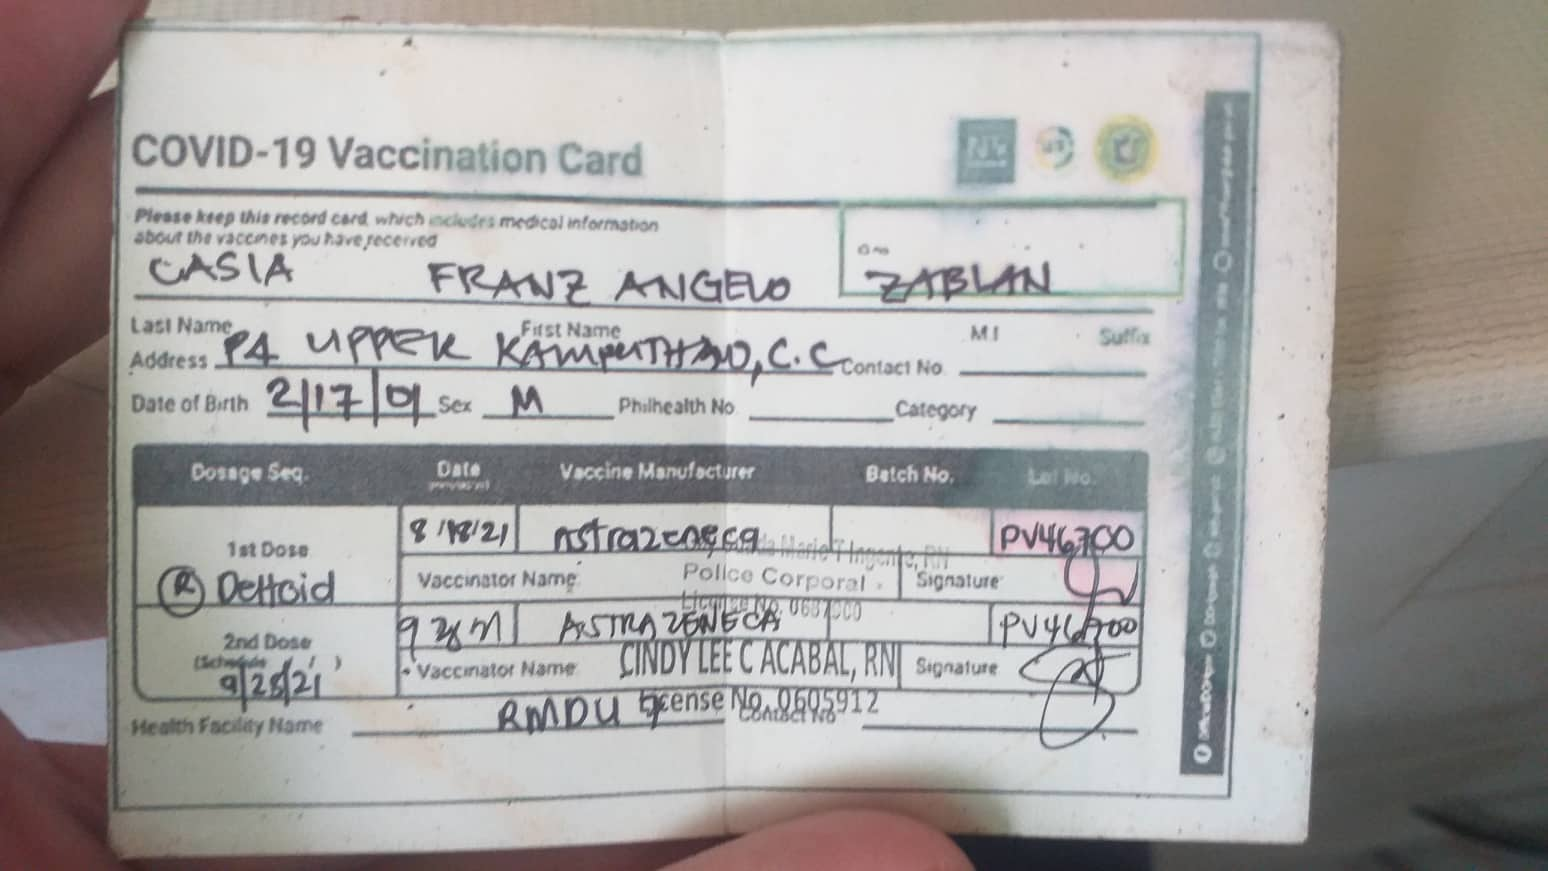 COVID-19 Vaccination Card
Please keep this record card, which includes medical information
about the vaccines you have received
CASIA FRANZ ANGELO ZABLAN
Last Name First Name M.I Suffix
Address P4 UPPER KAMPUTHAO, C.C Contact No.
Date of Birth 2/17/01 Sex M Philhealth No. Category
Dosage Seq. Date Vaccine Manufacturer Batch No. Lot No.
1st Dose 8/18/21 Astrazeneca PV46700
(R) Deltoid Vaccinator Name: Marie T Ingente, RN Signature
Police Corporal
License No. 0687900
2nd Dose ASTRAZENECA PV46700
(Schedule / / )
9/28/21 Vaccinator Name: CINDY LEE C ACABAL, RN Signature
License No. 0605912
Health Facility Name RMDU Contact No